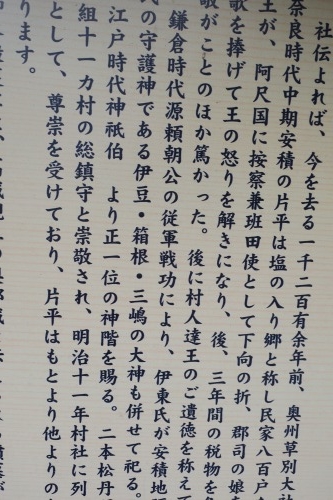 社伝よれば、今を去る一千二百有余年前、奥州草別大社
奈良時代中期安積の片平は塩の入り郷と称し民家八百戸
王が、阿尺国に按察兼班田使として下向の折、郡司の娘
歌を捧げて王の怒りを解きになり、後、三年間の税物を
敬がことのほか篤かった。後に村人達王のご遺徳を称えて
鎌倉時代源頼朝公の従軍戦功により、伊東氏が安積地
の守護神である伊豆・箱根・三嶋の大神も併せて祀る。
江戸時代神祇伯　より正一位の神階を賜る。二本松丹
組十一カ村の総鎮守と崇敬され、明治十一年村社に列
として、尊崇を受けており、片平はもとより他よりの
ります。